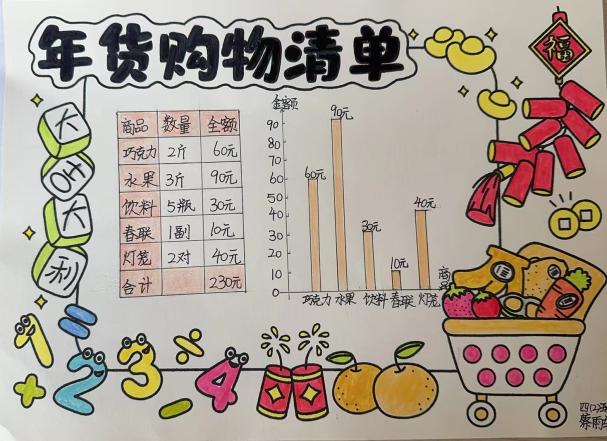 年货购物清单
福
大
吉
大
利
商品 数量 金额
巧克力 2斤 60元
水果 3斤 90元
饮料 5瓶 30元
春联 1副 10元
灯笼 2对 40元
合计 230元
金额
90
80
70
60
50
40
30
20
10
0
60元
90元
30元
10元
40元
商品
巧克力 水果 饮料 春联 灯笼
1 = 2 3 ÷ 4
+ -